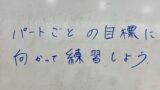 パートごとの目標に
向かって練習しよう